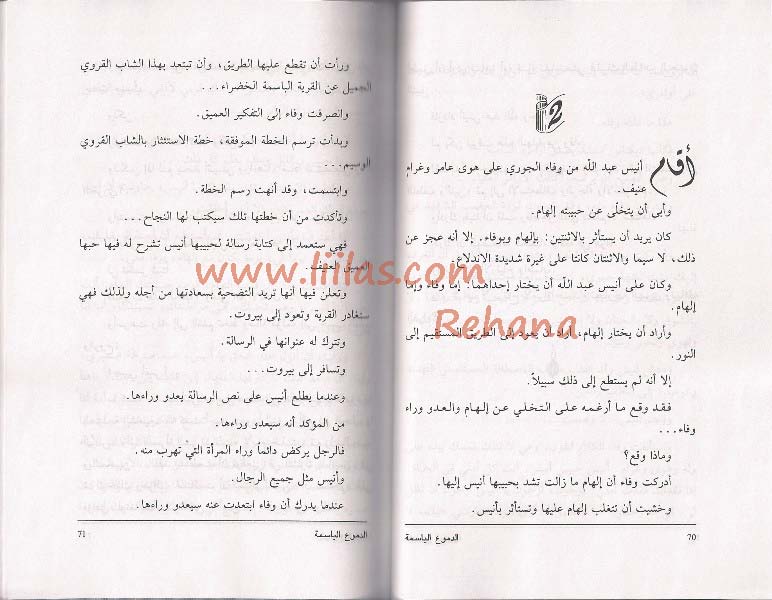 2
أقام أنيس عبد الله من وفاء الجوري على هوى عامر وغرام
عنيف.
وأبى أن يتخلّى عن حبيبته إلهام.
كان يريد أن يستأثر بالاثنتين: بإلهام وبوفاء. إلا أنه عجز عن
ذلك، لا سيما والاثنتان كانتا على غيرة شديدة الاندلاع.
وكان على أنيس عبد الله أن يختار إحداهما. إما وفاء وإما
إلهام.
وأراد أن يختار إلهام، أراد أن يعود إلى الطريق المستقيم إلى
النور.
إلا أنه لم يستطع إلى ذلك سبيلاً.
فقد وقع ما أرغمه على التخلي عن إلهام والعدو وراء
وفاء...
وماذا وقع؟
أدركت وفاء أن إلهام ما زالت تشد بحبيبها أنيس إليها.
وخشيت أن تتغلب إلهام عليها وتستأثر بأنيس.
70
الدموع الباسمة
ورأت أن تقطع عليها الطريق، وأن تبتعد بهذا الشاب القروي
الجميل عن القرية الباسمة الخضراء...
وانصرفت وفاء إلى التفكير العميق.
وبدأت ترسم الخطة الموفقة، خطة الاستئثار بالشاب القروي
الوسيم...
وابتسمت، وقد أنهت رسم الخطة.
وتأكدت من أن خطتها تلك سيكتب لها النجاح...
فهي ستعمد إلى كتابة رسالة لحبيبها أنيس تشرح له فيها حبها
العميق العنيف.
وتعلن فيها أنها تريد التضحية بسعادتها من أجله ولذلك فهي
ستغادر القرية وتعود إلى بيروت.
وتترك له عنوانها في الرسالة.
وتسافر إلى بيروت...
وعندما يطلع أنيس على نص الرسالة يعدو وراءها.
من المؤكد أنه سيعدو وراءها.
فالرجل يركض دائماً وراء المرأة التي تهرب منه.
وأنيس مثل جميع الرجال.
عندما يدرك أن وفاء ابتعدت عنه سيعدو وراءها.
الدموع الباسمة
71
www.liilas.com
Rehana